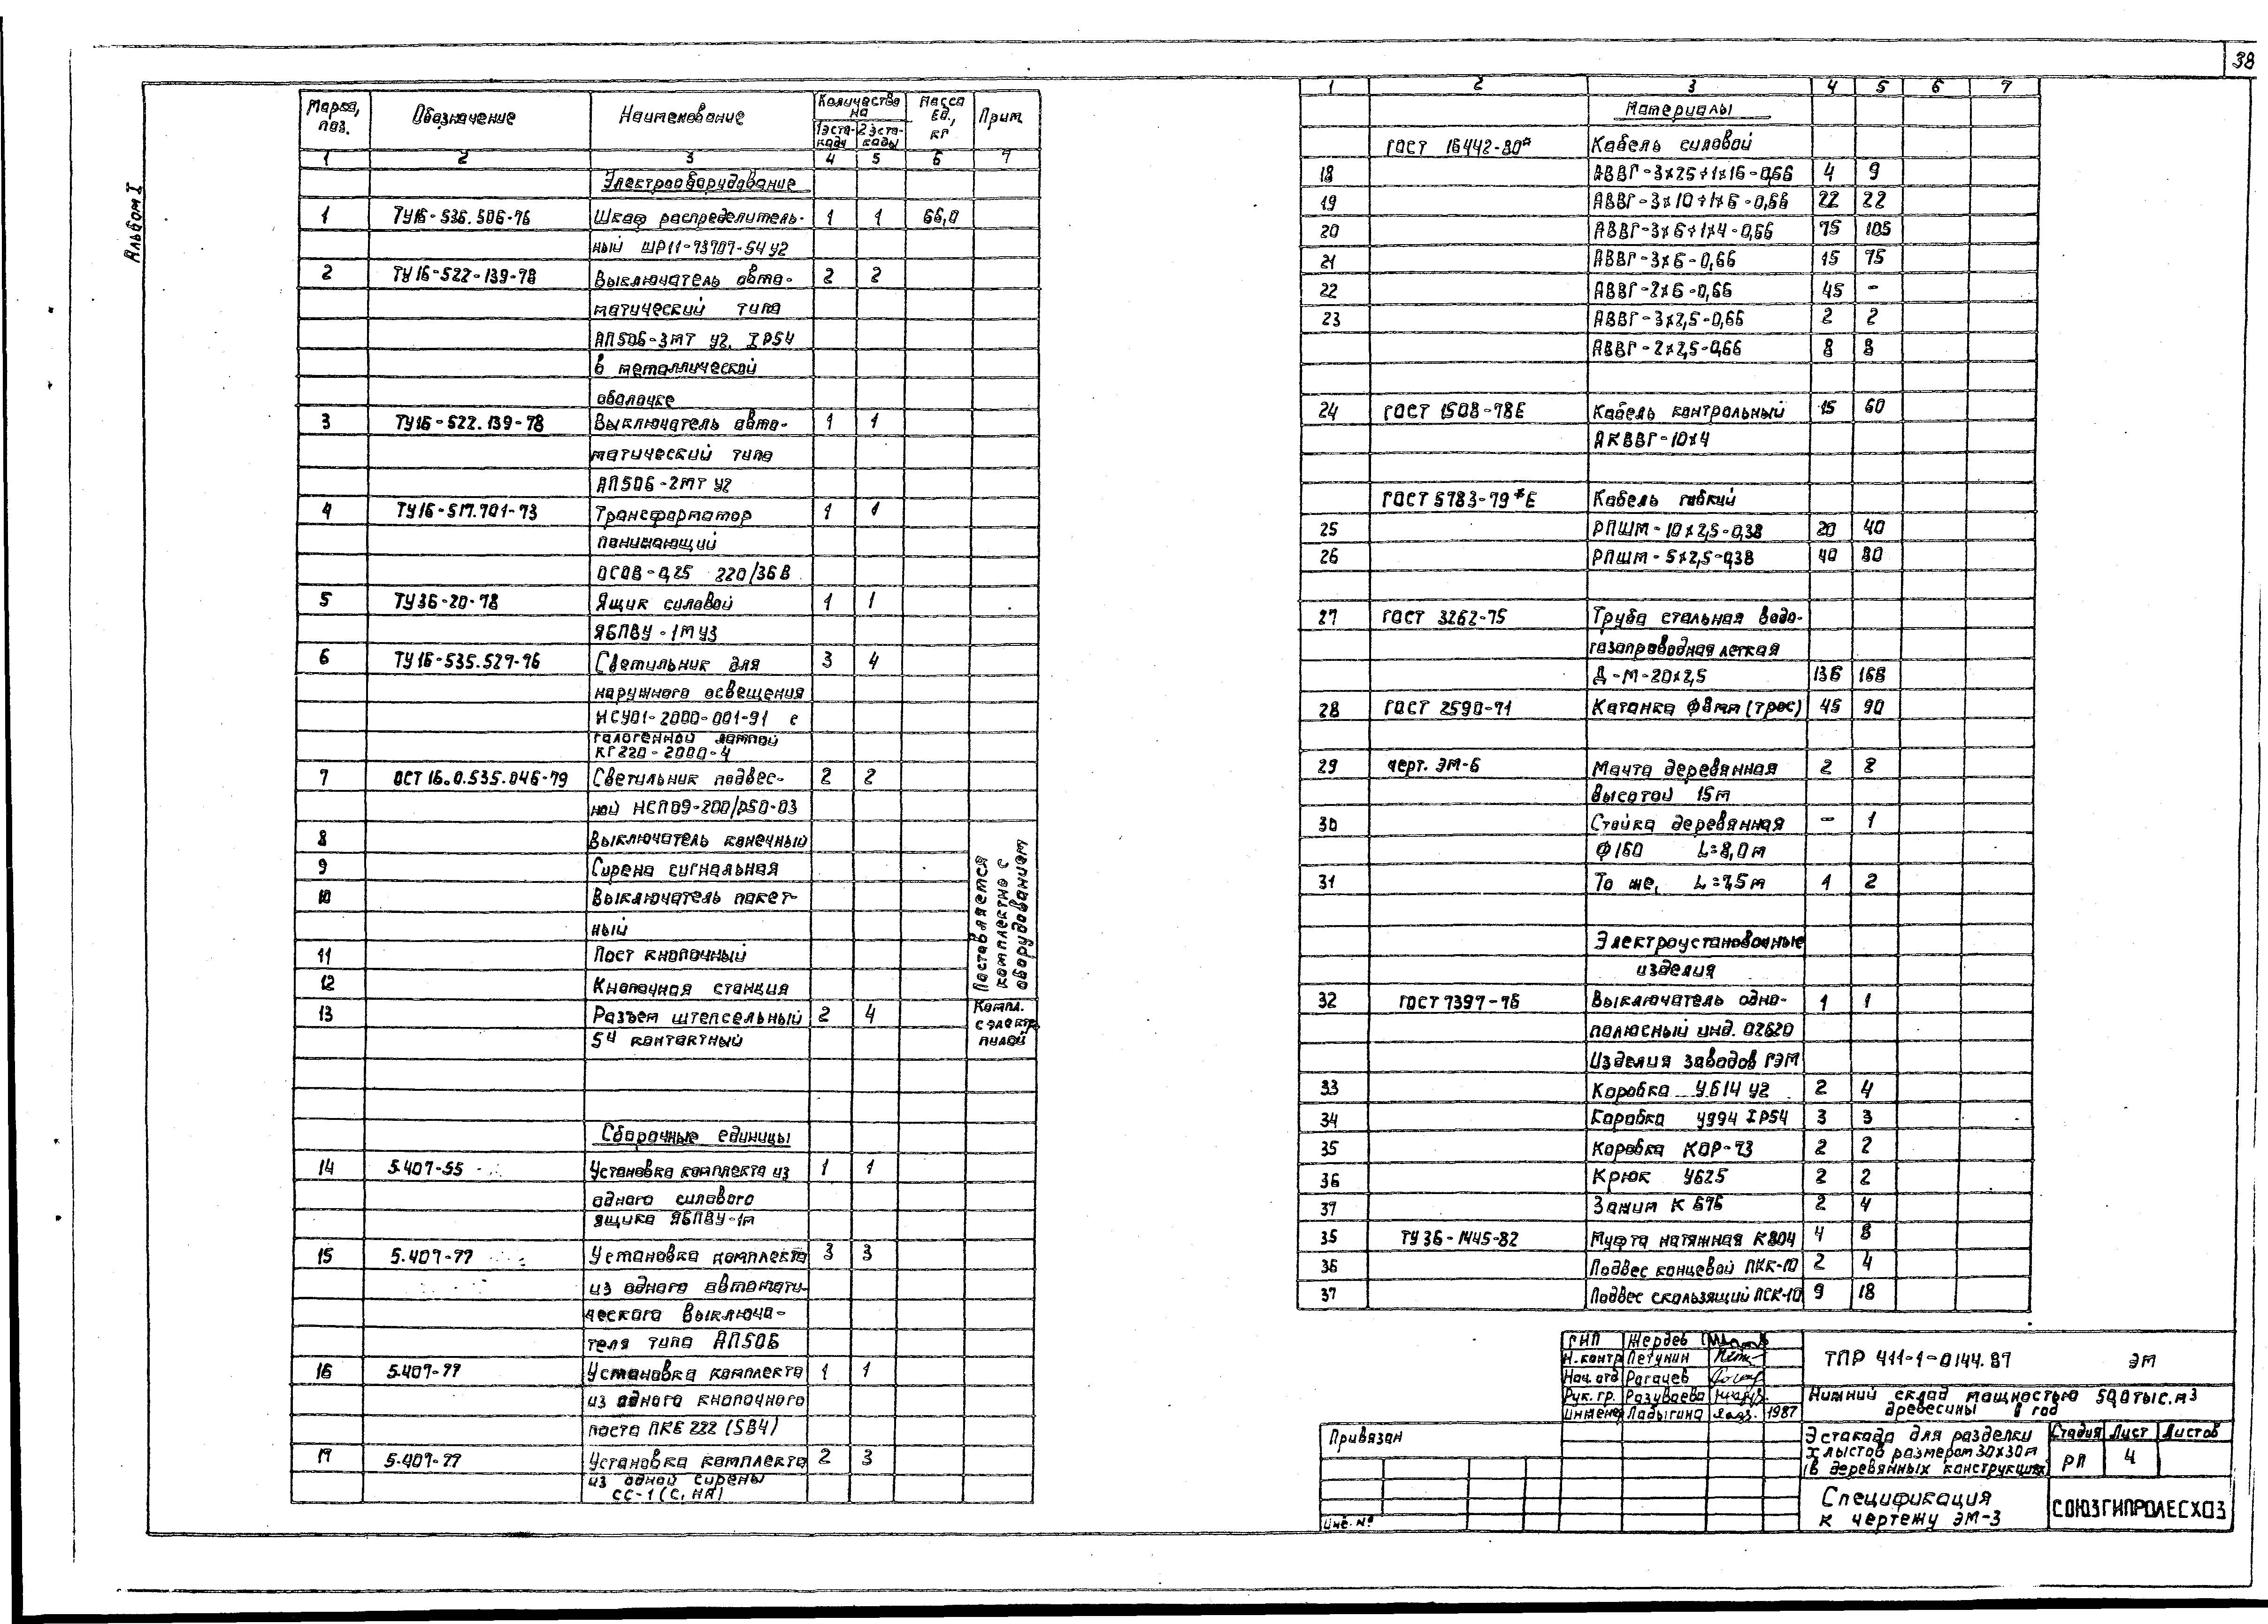 38
Альбом I
Марка, поз. Обозначение Наименование Количество на Масса ед., кг Прим.
1 эста-каду 2 эста-кады
1 2 3 4 5 6 7
Электрооборудование
1 ТУ16-536.506-76 Шкаф распределитель- 1 1 66,0
ный ШР11-73707-54У2
2 ТУ16-522-139-78 Выключатель авто- 2 2
матический типа
АП50Б-3МТ У2. IP54
в металлической
оболочке
3 ТУ16-522.139-78 Выключатель авто- 1 1
матический типа
АП50Б-2МТ У2
4 ТУ16-517.701-73 Трансформатор 1 1
понижающий
ОСОВ-0,25 220/36В
5 ТУ36-20-78 Ящик силовой 1 1
ЯБПВУ-1М У3
6 ТУ16-535.529-76 Светильник для 3 4
наружного освещения
НСУ01-2000-001-91 с
галогенной лампой
КГ220-2000-4
7 ОСТ 16.0.535.046-79 Светильник подвес- 2 2
ной НСП09-200/Р50-03
8 Выключатель конечный
9 Сирена сигнальная
10 Выключатель пакет-
ный
11 Пост кнопочный
12 Кнопочная станция
Поставляется комплектно с оборудованием
13 Разъем штепсельный 2 4 Компл. с электр. пилой
54 контактный
Сборочные единицы
14 5.407-55 Установка комплекта из 1 1
одного силового
ящика ЯБПВУ-1м
15 5.407-77 Установка комплекта 3 3
из одного автомати-
ческого выключа-
теля типа АП50Б
16 5.407-77 Установка комплекта 1 1
из одного кнопочного
поста ПКЕ 222 (SB4)
17 5.407-77 Установка комплекта 2 3
из одной сирены
СС-1 (С, НА)
1 2 3 4 5 6 7
Материалы
ГОСТ 16442-80* Кабель силовой
18 АВВГ-3х25+1х16-0,66 4 9
19 АВВГ-3х10+1х6-0,66 22 22
20 АВВГ-3х6+1х4-0,66 75 105
21 АВВГ-3х6-0,66 15 75
22 АВВГ-2х6-0,66 45 -
23 АВВГ-3х2,5-0,66 2 2
АВВГ-2х2,5-0,66 8 8
24 ГОСТ 1508-78Е Кабель контрольный 15 60
АКВВГ-10х4
ГОСТ 5783-79*Е Кабель гибкий
25 РПШМ-10х2,5-0,38 20 40
26 РПШМ-5х2,5-0,38 40 80
27 ГОСТ 3262-75 Труба стальная водо-
газопроводная легкая
Д-М-20х2,5 136 168
28 ГОСТ 2590-71 Катанка ф8мм (трос) 45 90
29 черт. ЭМ-6 Мачта деревянная 2 2
высотой 15м
30 Стойка деревянная - 1
ф160 L=8,0м
31 То же, L=7,5м 1 2
Электроустановочные
изделия
32 ГОСТ 7397-76 Выключатель одно- 1 1
полюсный инд. 02620
Изделия заводов ГЭМ
33 Коробка У614 У2 2 4
34 Коробка У994 IP54 3 3
35 Коробка КОР-73 2 2
36 Крюк У625 2 2
37 Зажим К 676 2 4
35 ТУ 36-1445-82 Муфта натяжная К804 4 8
36 Подвес концевой ПКК-10 2 4
37 Подвес скользящий ПСК-10 9 18
ГИП Жердев
Н.контр Летунин
Нач. отд Рагачев
Рук. гр. Разуваева
Инженер Ладыгина 1987
ТПР 411-1-0144.87 ЭМ
Нижний склад мощностью 50,0 тыс. м3
древесины в год
Эстакада для разделки
хлыстов размером 30х30м
(в деревянных конструкциях)
Стадия Лист Листов
РП 4
Спецификация
к чертежу ЭМ-3
СОЮЗГИПРОЛЕСХОЗ
Привязан
Инв. №